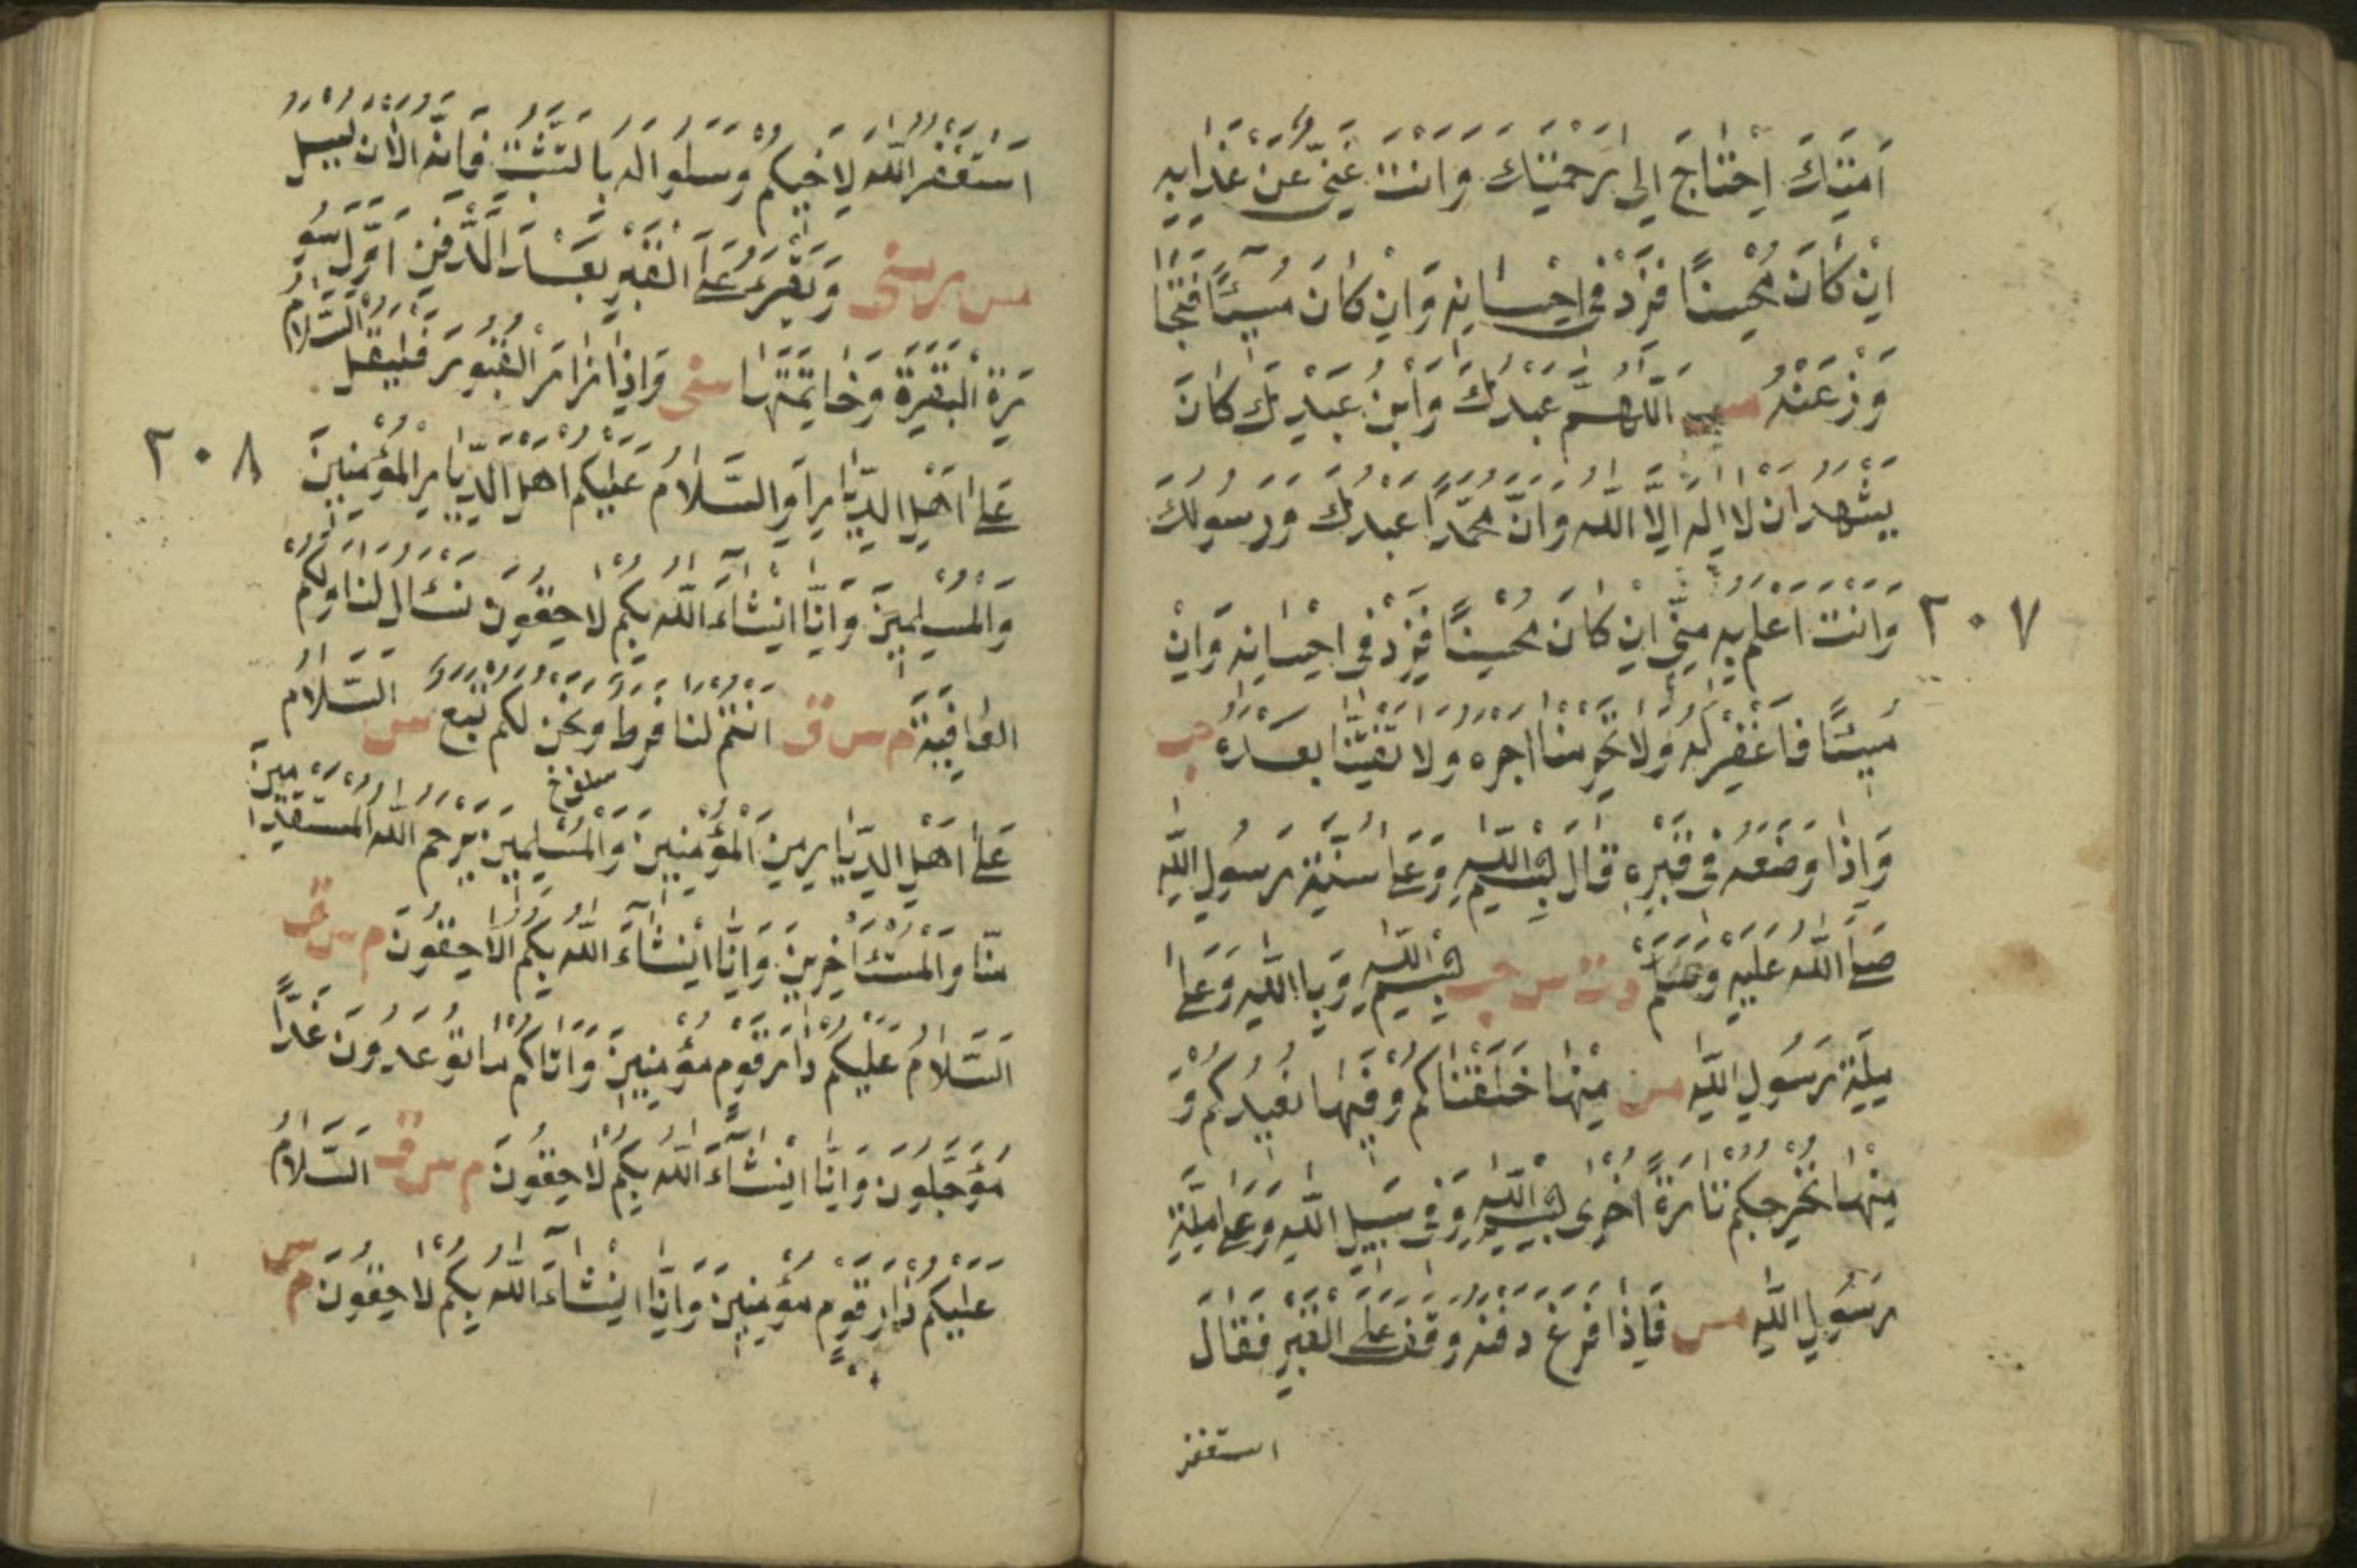 اَمَتِكَ اِحْتَاجَ اِلىٰ رَحْمَتِكَ وَاَنْتَ غَنِىٌّ عَنْ عَذَابِهِ
اِنْ كَانَ مُحْسِنًا فَزِدْ فى اِحْسَانِهِ وَاِنْ كَانَ مُسِيْئًا فَتَجَا
وَزْ عَنْهُ مس اَللّٰهُمَّ عَبْدُكَ وَابْنُ عَبْدِكَ كَانَ
يَشْهَدُ اَنْ لَا اِلٰهَ اِلَّا اللّٰهُ وَاَنَّ مُحَمَّدًا عَبْدُكَ وَرَسُولُكَ
وَاَنْتَ اَعْلَمُ بِهِ مِنِّى اِنْ كَانَ مُحْسِنًا فَزِدْ فى اِحْسَانِهِ وَاِنْ
٢٠٧
مُسِيْئًا فَاغْفِرْ لَهُ وَلَا تَحْرِمْنَا اَجْرَهُ وَلَا تَفْتِنَّا بَعْدَهُ حب
وَاِذَا وَضَعَهُ فِى قَبْرِهِ قَالَ بِسْمِ اللّٰهِ وَعَلىٰ سُنَّةِ رَسُولِ اللّٰهِ
صَلَّى اللّٰهُ عَلَيْهِ وَسَلَّمَ د ت س حب بِسْمِ اللّٰهِ وَبِا اللّٰهِ وَعَلىٰ
مِلَّةِ رَسُولِ اللّٰهِ مس مِنْهَا خَلَقْنَاكُمْ وَفِيْهَا نُعِيْدُكُمْ وَ
مِنْهَا نُخْرِجُكُمْ تَارَةً اُخْرىٰ بِسْمِ اللّٰهِ وَفِى سَبِيْلِ اللّٰهِ وَعَلىٰ مِلَّةِ
رَسُولِ اللّٰهِ مس فَاِذَا فَرَغَ دَفْنَهُ وَقَفَ عَلَى الْقَبْرِ فَقَالَ
استغفر
اسْتَغْفِرُ اللّٰهَ لِاَخِيْكُمْ وَسَلُوا لَهُ بِالتَّثَبُّتِ فَاِنَّهُ الْاٰنَ يُسْئَلُ
مس ر سنى وَيَقْرَءُ عَلَى الْقَبْرِ بَعْدَ الدَّفْنِ اَوَّلَ سُو
رَةِ الْبَقَرَةِ وَخَاتِمَتَهَا سنى وَاِذَا زَارَ الْقُبُورَ فَلْيَقُلْ السَّلَامُ
عَلىٰ اَهْلِ الدِّيَارِ اَوِ السَّلَامُ عَلَيْكُمْ اَهْلَ الدِّيَارِ الْمُؤْمِنِينَ
٢٠٨
وَالْمُسْلِمِينَ وَاِنَّا اِنْشَاءَ اللّٰهُ بِكُمْ لَاحِقُونَ نَسْئَالُ لَنَا وَلَكُمْ
الْعَافِيَةَ م س ق اَنْتُمْ لَنَا فَرَطٌ وَنَحْنُ لَكُمْ تَبَعٌ س السَّلَامُ
عَلىٰ اَهْلِ الدِّيَارِ مِنَ الْمُؤْمِنِينَ وَالْمُسْلِمِينَ يَرْحَمُ اللّٰهُ الْمُسْتَقْدِمِينَ
مِنَّا وَالْمُسْتَئَاخِرِينَ وَاِنَّا اِنْشَاءَ اللّٰهُ بِكُمْ لَلَاحِقُونَ م س ق
اَلسَّلَامُ عَلَيْكُمْ دَارَ قَوْمٍ مُؤْمِنِينَ وَاَتَاكُمْ مَا تُوعَدُونَ غَدًا
مُؤَجَّلُونَ وَاِنَّا اِنْشَاءَ اللّٰهُ بِكُمْ لَاحِقُونَ م س ق السَّلَامُ
عَلَيْكُمْ دَارَ قَوْمٍ مُؤْمِنِينَ وَاِنَّا اِنْشَاءَ اللّٰهُ بِكُمْ لَاحِقُونَ م س